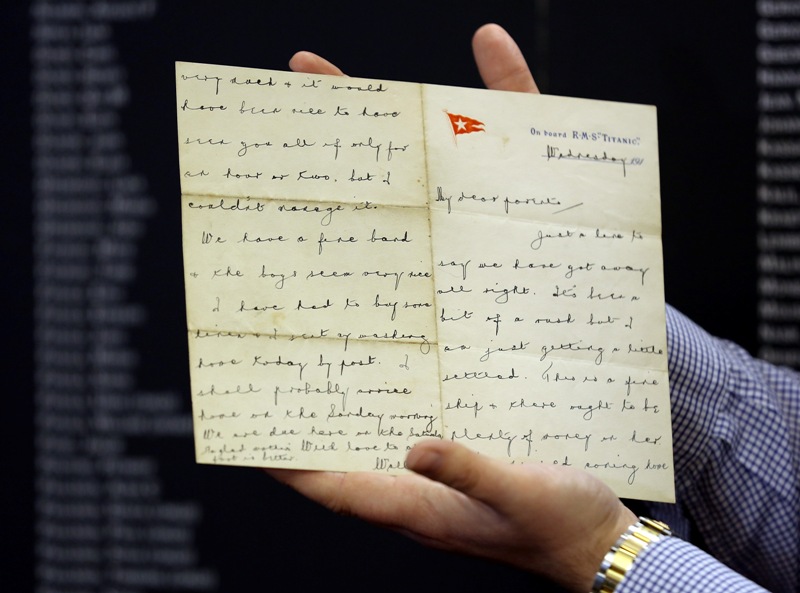 On board R.M.S. "TITANIC".
Wednesday 191
My dear parents
Just a line to
say we have got away
all right. It's been a
bit of a rush but I
am just getting a little
settled. This is a fine
ship & there ought to be
plenty of money on her.
coming home
very much & it would
have been nice to have
seen you all if only for
an hour or two. but I
couldn't manage it.
We have a fine band
& the boys seem very nice
I have had to buy some
linen & I sent my washing
home today by post. I
shall probably arrive
home on the Sunday morning
We are due here on the Saturday
glad mother's
foot is better. With love to
Wall